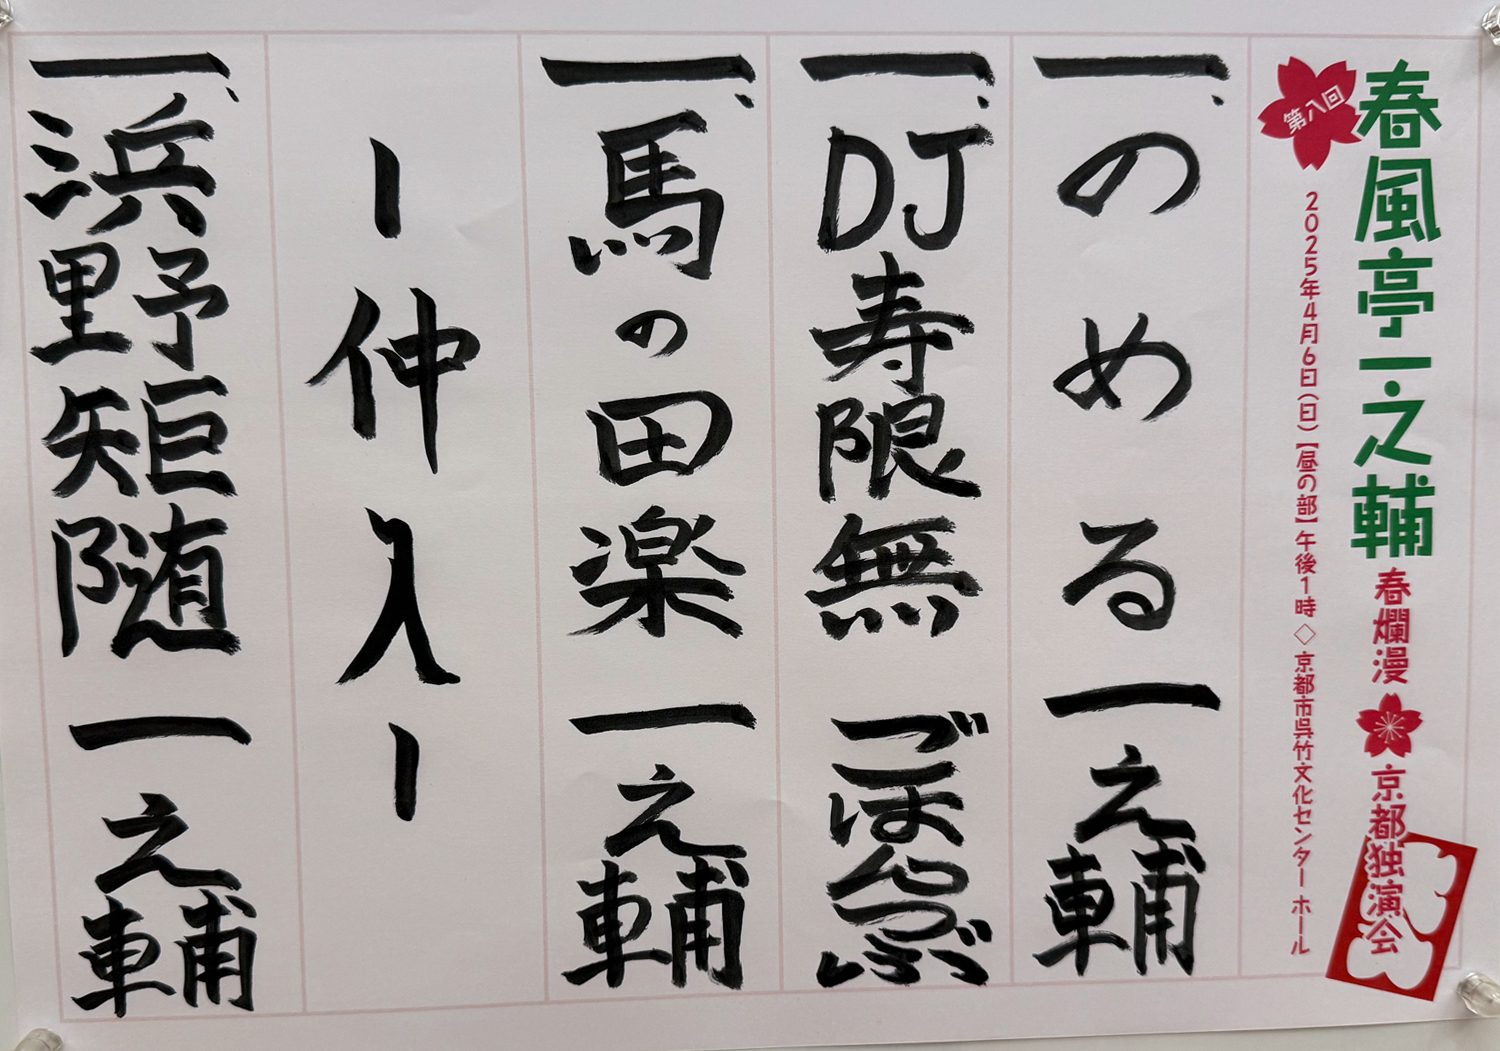 春風亭一之輔 春爛漫 京都独演会
第八回
2025年4月6日（日）【昼の部】午後1時◇京都市呉竹文化センター ホール
一、のめる 一之輔
一、DJ寿限無 ごはんつぶ
一、馬の田楽 一之輔
ー仲入ー
一、浜野矩随 一之輔